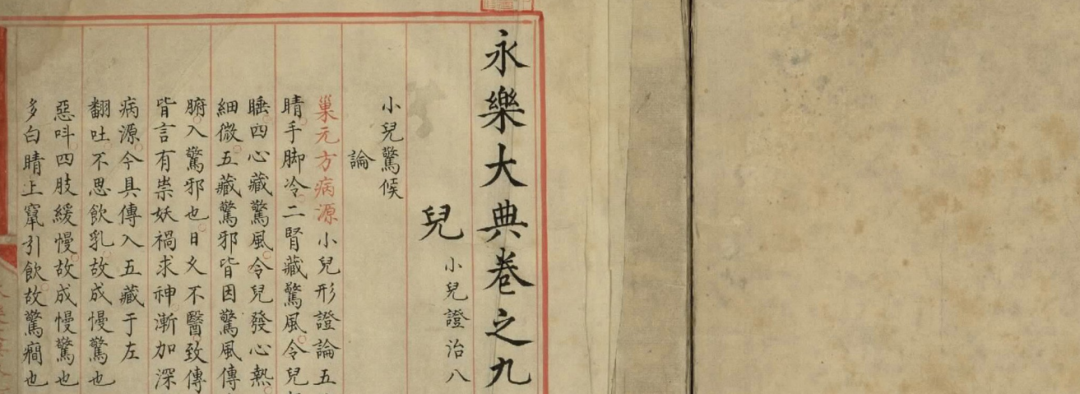 永樂大典卷之九
兒 小兒證治八
小兒驚候
論
巢元方病源小兒形證論五
睛手脚冷二腎藏驚風令兒
睡四心藏驚風令兒發心熱
細微五藏驚邪皆因驚風傳
腑入驚邪也日久不醫致傳
皆言有祟妖禍求神漸加深
病源今具傳入五藏于左
翻吐不思飲乳故成慢驚也
惡呌四肢緩慢故成慢驚也
多白睛上竄引飲故驚癎也